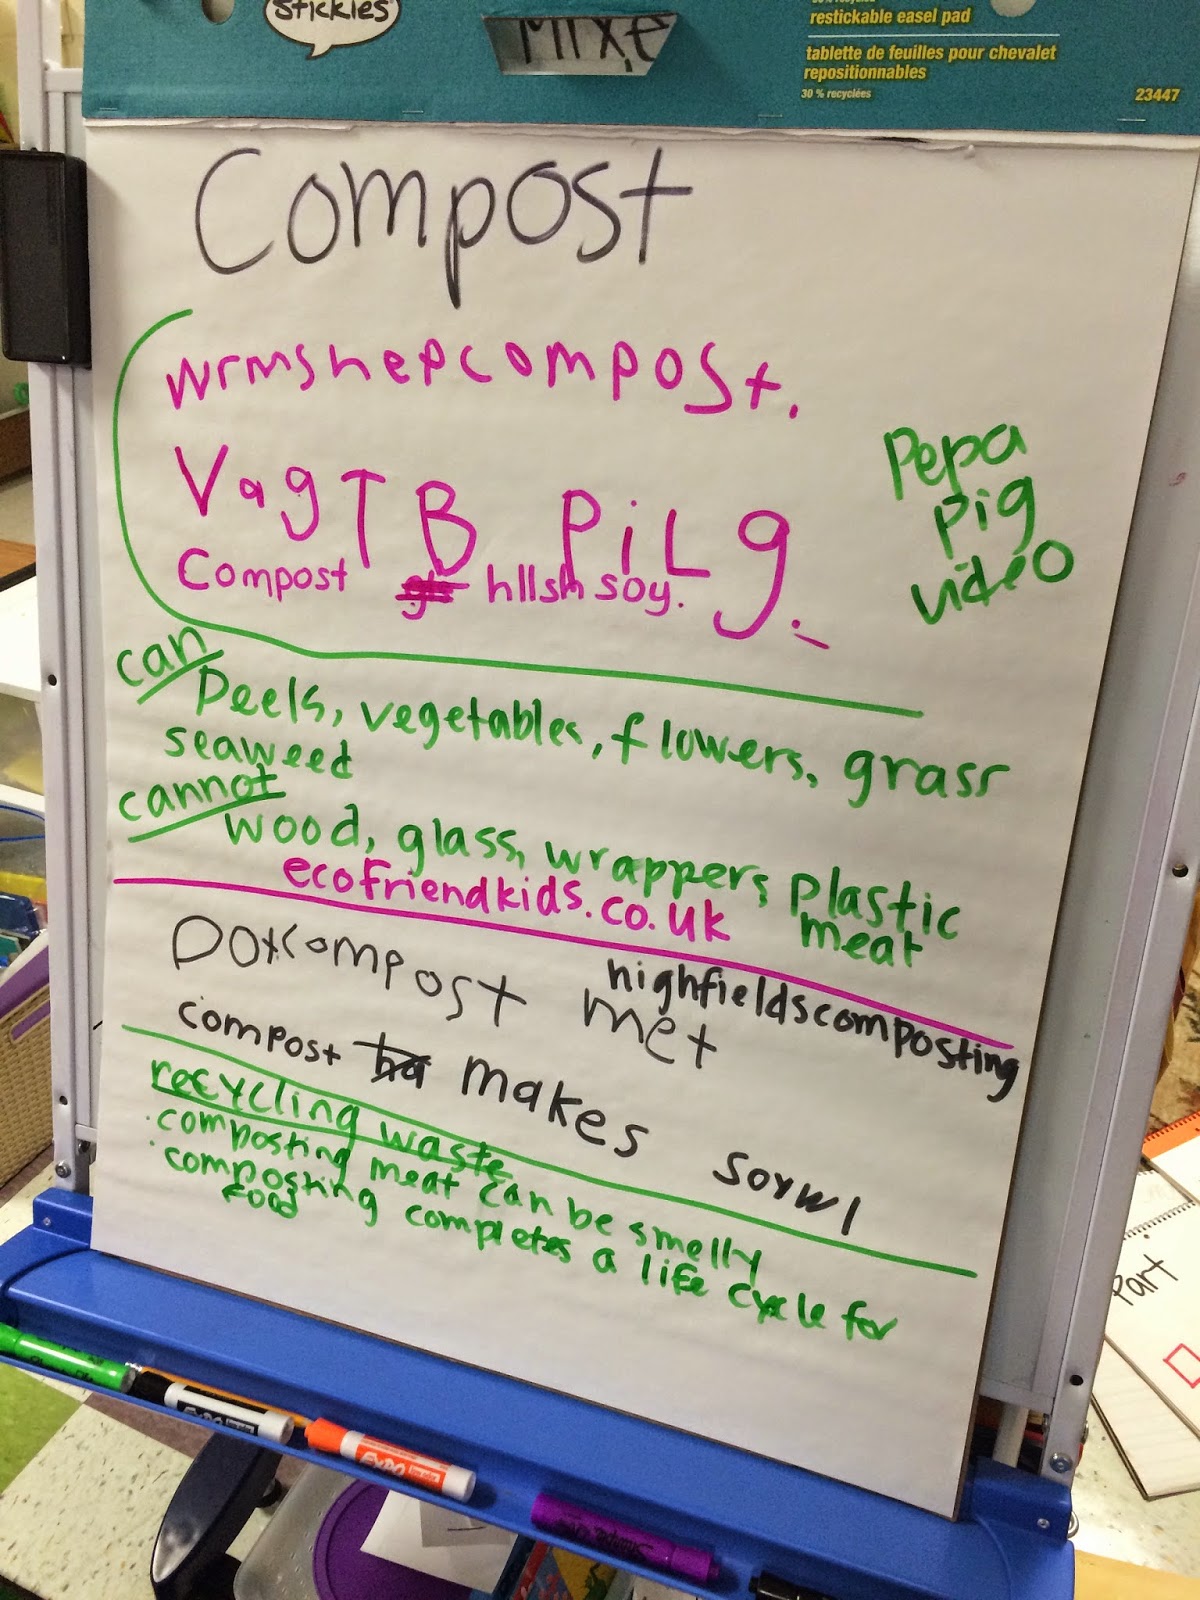 stickies
MIXE
restickable easel pad
tablette de feuilles pour chevalet
repositionnables
30 % recyclées
23447
Compost
wrmshepcompost.
VagTB PiLg.
Compost hllsh soy.
Pepa
pig
video
can
Peels, vegetables, flowers, grass
seaweed
cannot
wood, glass, wrappers, plastic
meat
ecofriendkids.co.uk
Dotcompost met
highfieldscomposting
compost makes soywl
recycling waste
· composting meat can be smelly
· composting completes a life cycle for
food
Part
EXPO
EXPO